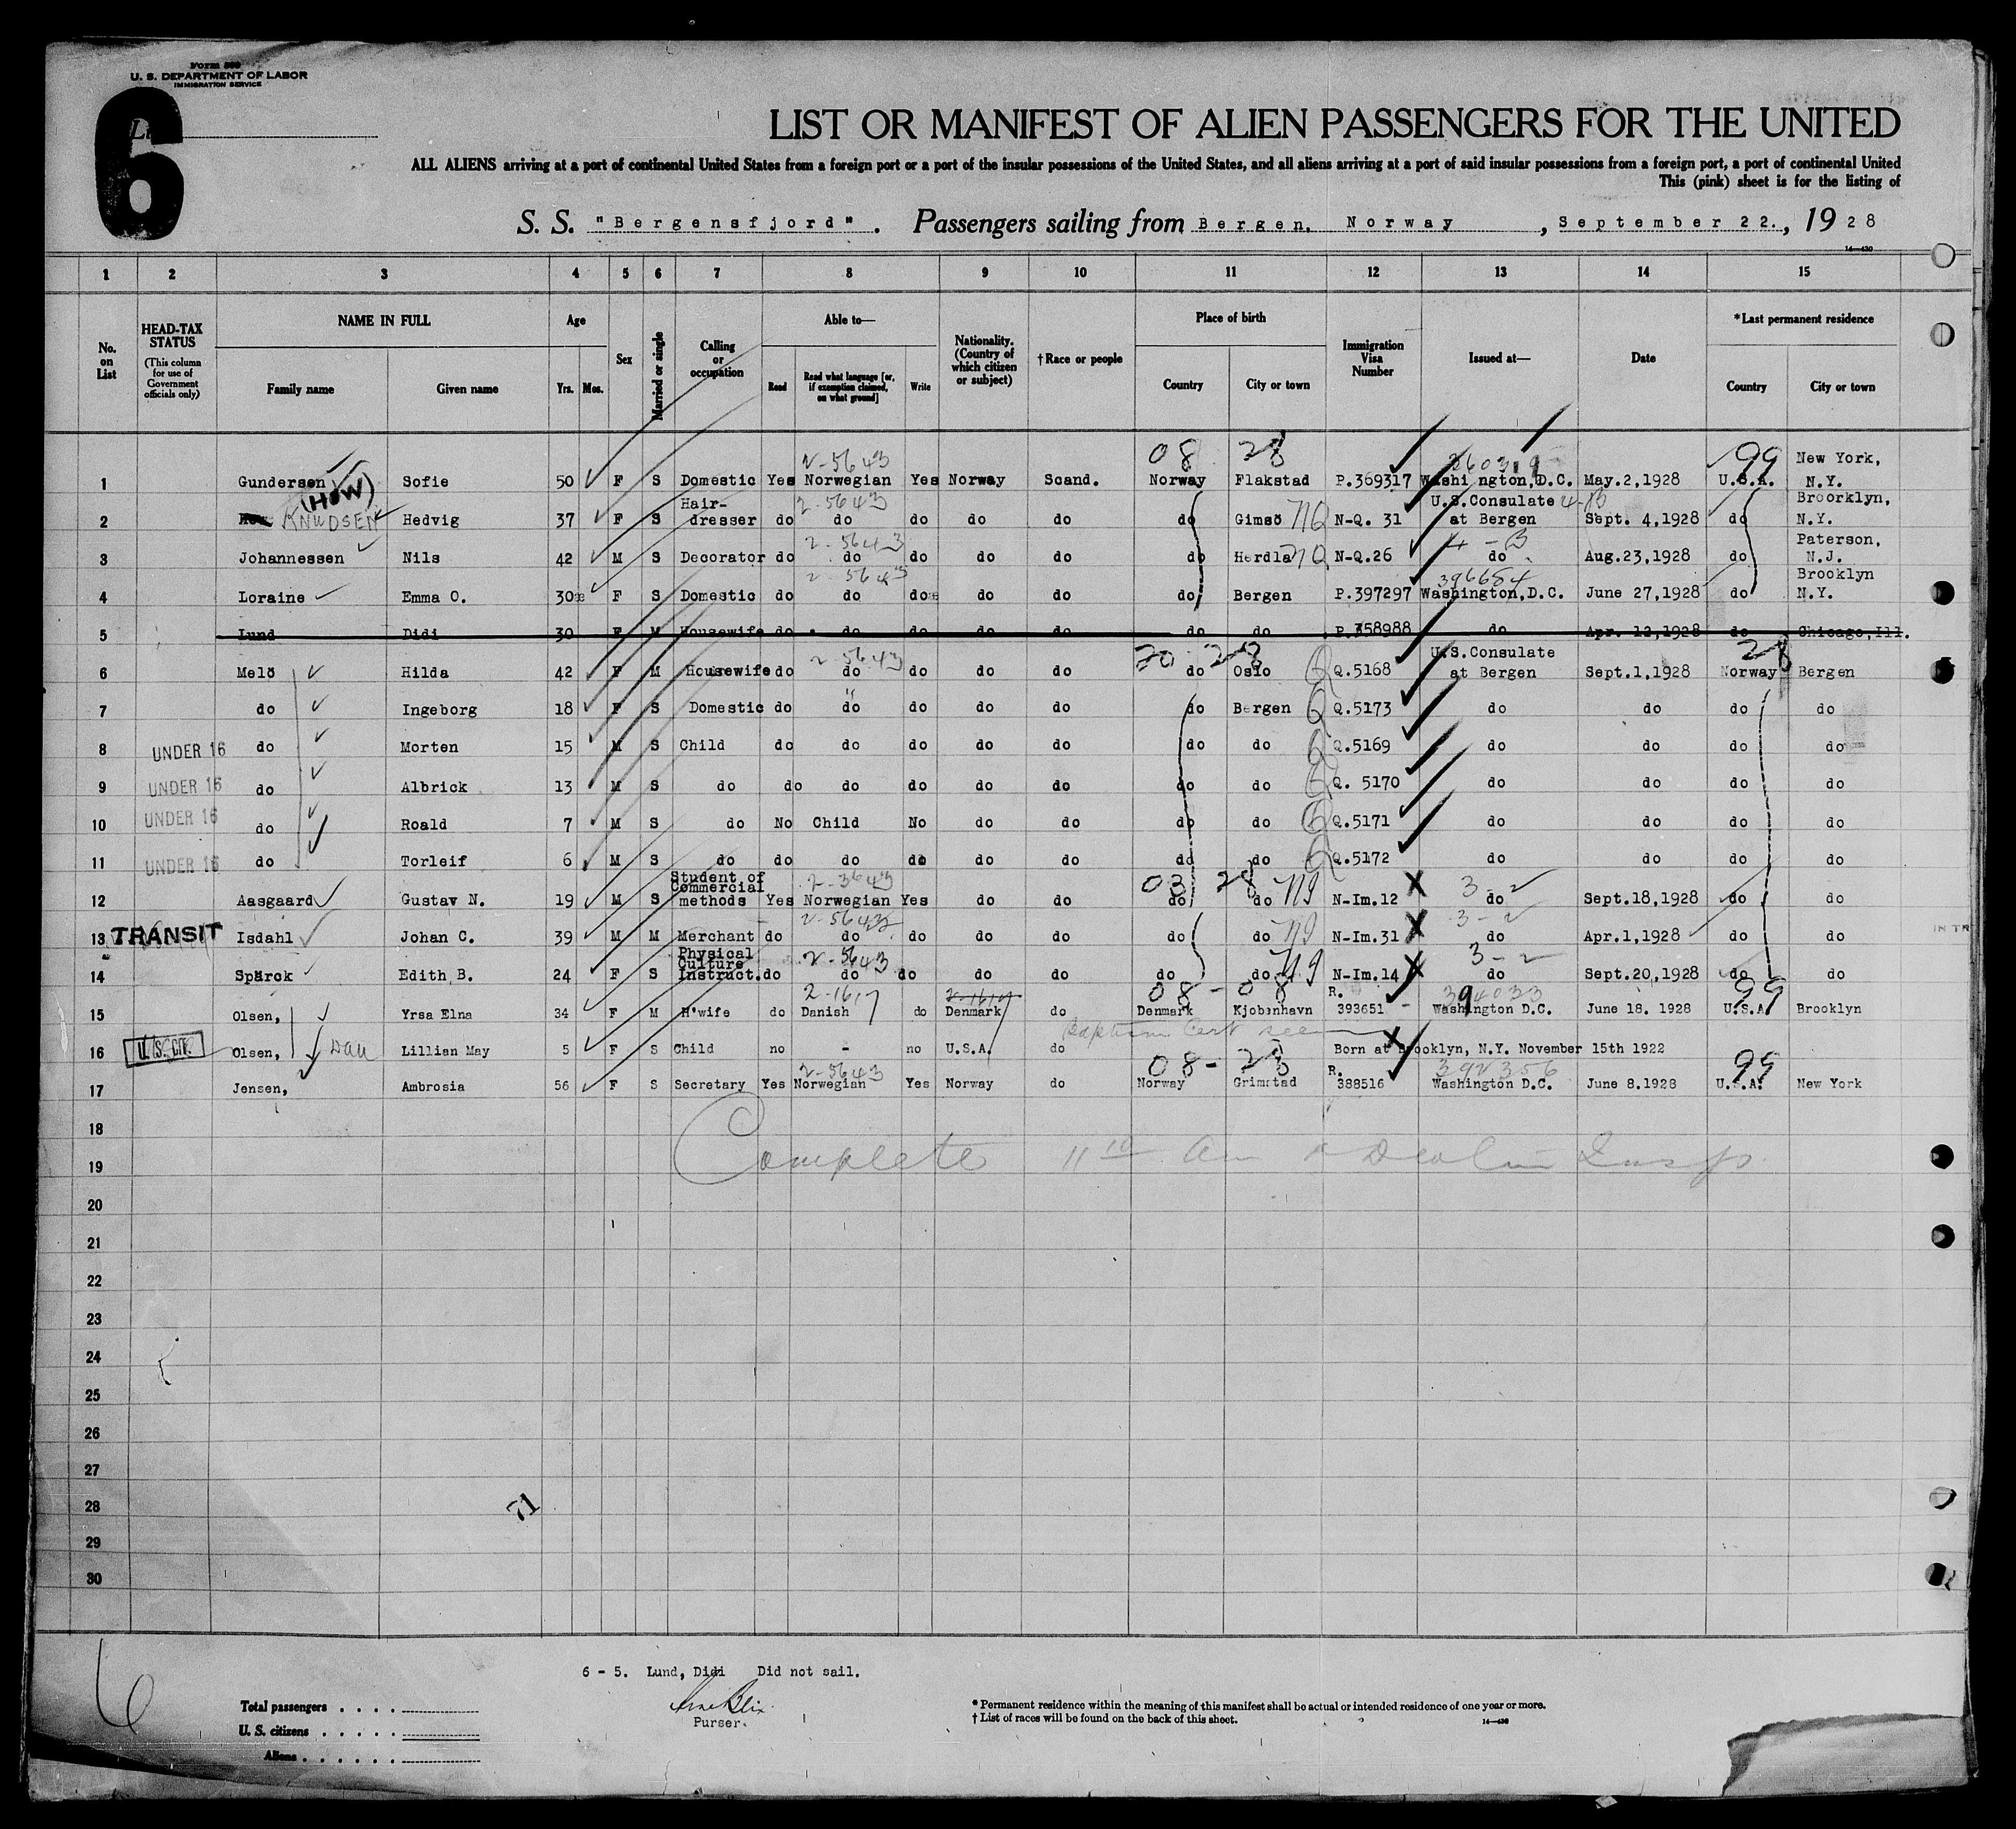 Form 500
U. S. DEPARTMENT OF LABOR
IMMIGRATION SERVICE
6
LIST OR MANIFEST OF ALIEN PASSENGERS FOR THE UNITED
ALL ALIENS arriving at a port of continental United States from a foreign port or a port of the insular possessions of the United States, and all aliens arriving at a port of said insular possessions from a foreign port, a port of continental United
This (pink) sheet is for the listing of
S. S. "Bergensfjord". Passengers sailing from Bergen, Norway, September 22., 1928
14—430
1 2 3 4 5 6 7 8 9 10 11 12 13 14 15
No. on List
HEAD-TAX STATUS (This column for use of Government officials only)
NAME IN FULL Family name Given name
Age Yrs. Mos.
Sex
Married or single
Calling or occupation
Able to— Read Read what language [or, if exemption claimed, on what ground] Write
Nationality. (Country of which citizen or subject)
†Race or people
Place of birth Country City or town
Immigration Visa Number
Issued at—
Date
*Last permanent residence Country City or town
08 28 2-5643 99
1 Gundersen Sofie 50 F S Domestic Yes Norwegian Yes Norway Scand. Norway Flakstad P.369317 Washington,D.C. May.2,1928 U.S.A. New York, N.Y.
2 KNUDSEN (HOW) Hedvig 37 F S Hair-dresser do 2-5643 do do do do do Gimsö NQ N-Q. 31 U.S.Consulate at Bergen 4-B Sept. 4,1928 do Broorklyn, N.Y.
3 Johannessen Nils 42 M S Decorator do 2-5643 do do do do do Herdla NQ N-Q.26 4-B do Aug.23,1928 do Paterson, N.J.
4 Loraine Emma O. 30 F S Domestic do 2-5643 do do do do do Bergen P.397297 396684 Washington,D.C. June 27,1928 do Brooklyn N.Y.
5 Lund Didi 30 F M Housewife do do do do do do do P.358988 do Apr. 12,1928 do Chicago,Ill.
6 Melö Hilda 42 F M Housewife do 2-5643 do do do do 20 28 do Oslo Q Q.5168 U.S.Consulate at Bergen Sept.1,1928 28 Norway Bergen
7 do Ingeborg 18 F S Domestic do do do do do do Bergen Q Q.5173 do do do do
8 UNDER 16 do Morten 15 M S Child do do do do do do do Q Q.5169 do do do do
9 UNDER 16 do Albrick 13 M S do do do do do do do do Q Q. 5170 do do do do
10 UNDER 16 do Roald 7 M S do No Child No do do do do Q Q.5171 do do do do
11 UNDER 16 do Torleif 6 M S do do do do do do do do Q Q.5172 do do do do
12 Aasgaard Gustav N. 19 M S Student of Commercial methods Yes 2-3643 Norwegian Yes do do 03 28 do do NI N-Im.12 3-2 do Sept.18,1928 do do
13 TRANSIT Isdahl Johan C. 39 M M Merchant do 2-5643 do do do do do do NI N-Im.31 3-2 do Apr.1,1928 do do
14 Spärck Edith B. 24 F S Physical Culture Instruct. do 2-5643 do do do do do do NI N-Im.14 3-2 do Sept.20,1928 do do
15 Olsen, Yrsa Elna 34 F M H'wife do 2-1617 Danish do Denmark do 08-08 Denmark Kjobenhavn R. 393651 394033 Washington D.C. June 18. 1928 99 U.S.A Brooklyn
16 U. S. CIT. Olsen, Dau Lillian May 5 F S Child no - no U.S.A. do Baptism Cert seen Born at Brooklyn, N.Y. November 15th 1922
17 Jensen, Ambrosia 56 F S Secretary Yes 2-5643 Norwegian Yes Norway do 08-28 Norway Grimstad R. 388516 392356 Washington D.C. June 8.1928 99 U.S.A. New York
18
Complete 11 10 am
19
20
21
22
23
24
25
26
27
28
71
29
30
6 - 5. Lund, Didi Did not sail.
6
Purser.
Total passengers
U. S. citizens
Aliens
* Permanent residence within the meaning of this manifest shall be actual or intended residence of one year or more.
† List of races will be found on the back of this sheet.
14—430